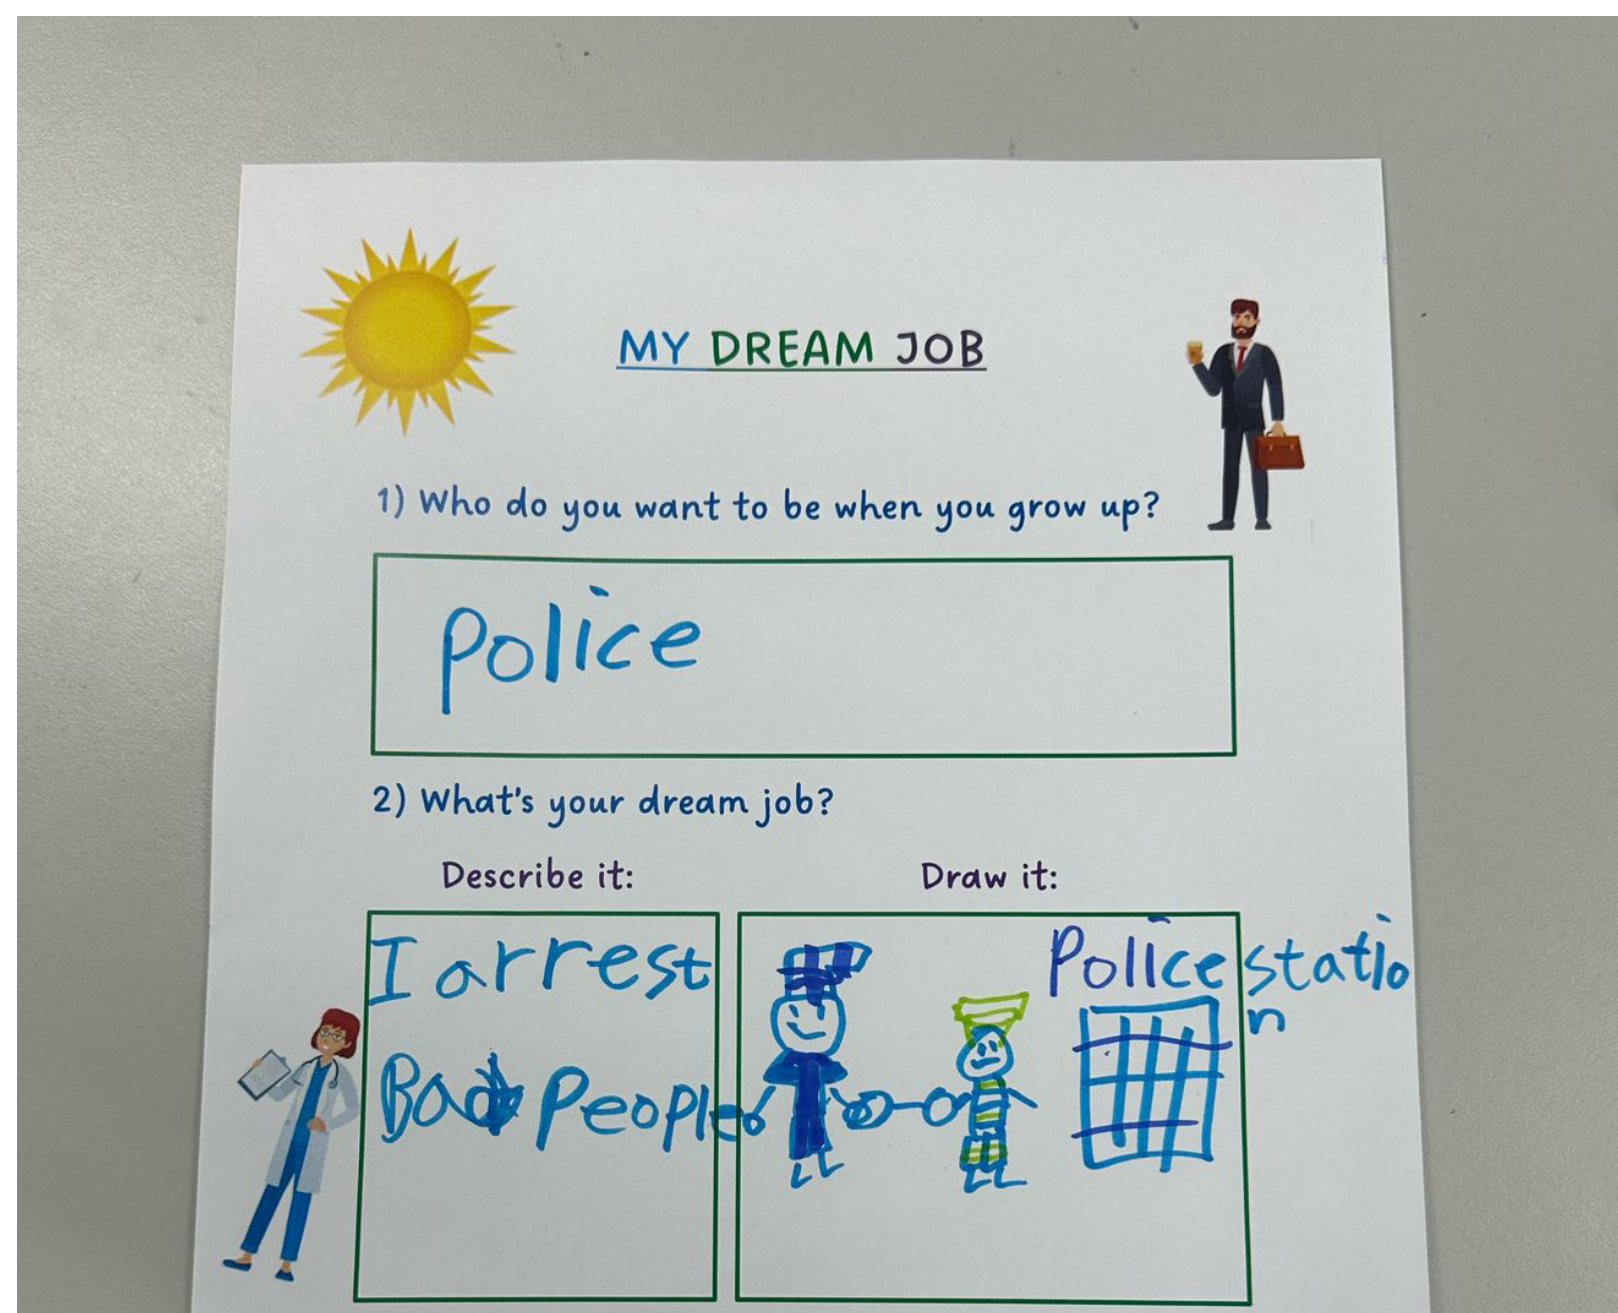 MY DREAM JOB
1) Who do you want to be when you grow up?
Police
2) What's your dream job?
Describe it:
I arrest
Bad People
Draw it:
Police statio
n